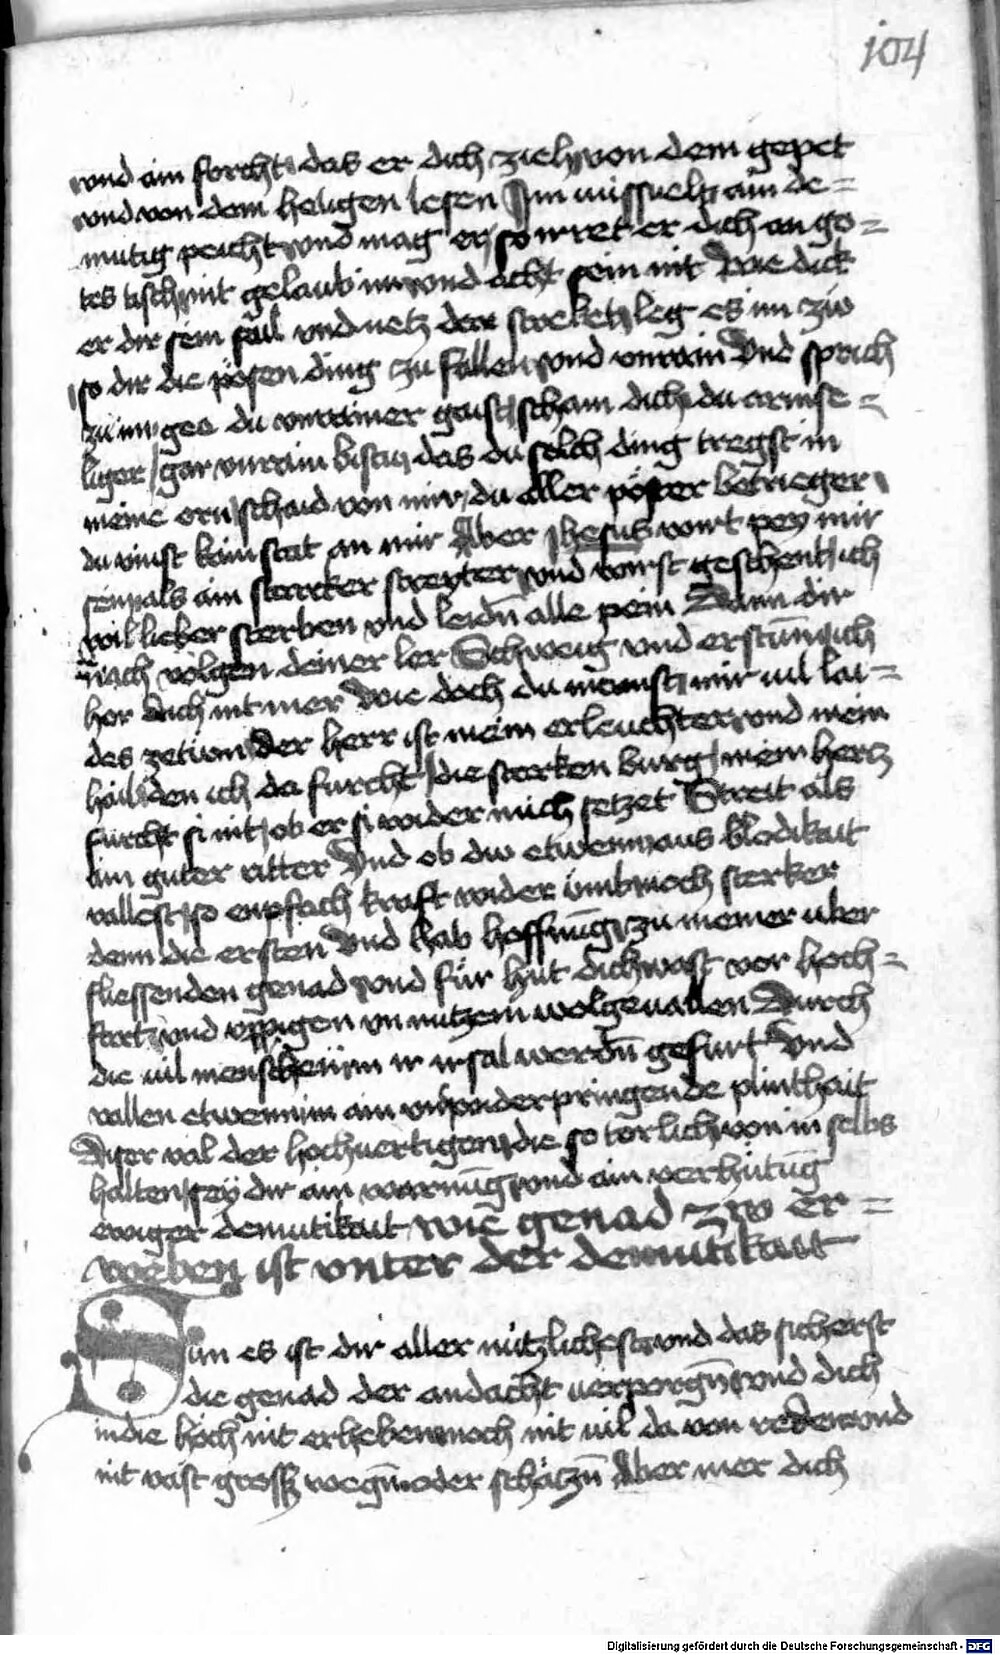 104
vnd ain forcht das er dich zieh von dem gepet
vnd von dem heiligen lesen Im missuelt ain de=
mutig peicht vnd mag er so irret er dich an go=
tes tisch nit gelaub im vnd acht sein nit Wie dick
er dir sein fall vnd netz dar strecket leg es im zw
so dir die pösen ding zu fallen vnd vnrain Vnd sprich
zu im gee du vnrainer gaist scham dich du armse=
liger gar vnrain bistu das du solch ding tregst in
meine orn schaid von mir du aller pöster betrieger
du vinst kain stat an mir Aber Jhesus wirt pey mir
sein als ain starcker streyter vnd wirst geschent ich
wil lieber sterben vnd leidn̄ alle pein Dann dir
nach volgen deiner ler Schweig vnd erstum̄ ich
hor dich nit mer wie doch du mainst mir vil lai=
des zetun der herr ist mein erleuchter vnd mein
hail den ich da furcht die starken burg mein hertz
furcht si nit ob er si wider mich setzet Streit als
ain guter ritter Vnd ob dw etwenn aus blödikait
vallest so enpfach kraft wider vmb noch sterker
denn die ersten Vnd hab hoffnūg zu meiner uber
fliessenden genad vnd für hüt dich vast vor hoch=
fart vnd vppigen vnnutzem wolgeuallen Durch
die vil menschen in ir irsal werdn̄ gefurt Vnd
vallen etwenn in ain vnwiderpringende plinthait
Diser val der hochuertigen die so torlich von in selbs
halten sey dir ain warnūg vnd ain verhütūg
ewiger demutikait wie genad zw er=
werben ist vnter der demutikait
Sun es ist dir aller nützlichest vnd das sicherst
die genad der andacht verporgn̄ vnd dich
in die höch nit erheben noch nit vil da von reden vnd
nit vast gross wegn̄ oder schätzn̄ Aber mer dich
Digitalisierung gefördert durch die Deutsche Forschungsgemeinschaft - DFG